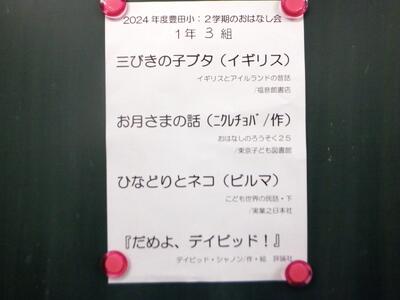 2024年度豊田小:2学期のおはなし会
1年 3 組
三びきの子ブタ(イギリス)
イギリスとアイルランドの昔話
/福音館書店
お月さまの話(ニクレチョバ/作)
おはなしのろうそく25
/東京子ども図書館
ひなどりとネコ(ビルマ)
こども世界の民話・下
/実業之日本社
『だめよ、デイビッド!』
デイビッド・シャノン/作・絵 評論社